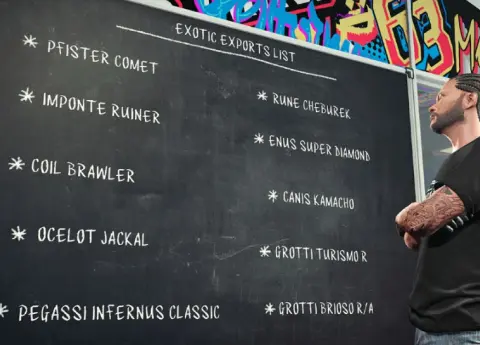 EXOTIC EXPORTS LIST
* PFISTER COMET
* IMPONTE RUINER
* COIL BRAWLER
* OCELOT JACKAL
* PEGASSI INFERNUS CLASSIC
* RUNE CHEBUREK
* ENUS SUPER DIAMOND
* CANIS KAMACHO
* GROTTI TURISMO R
* GROTTI BRIOSO R/A
63